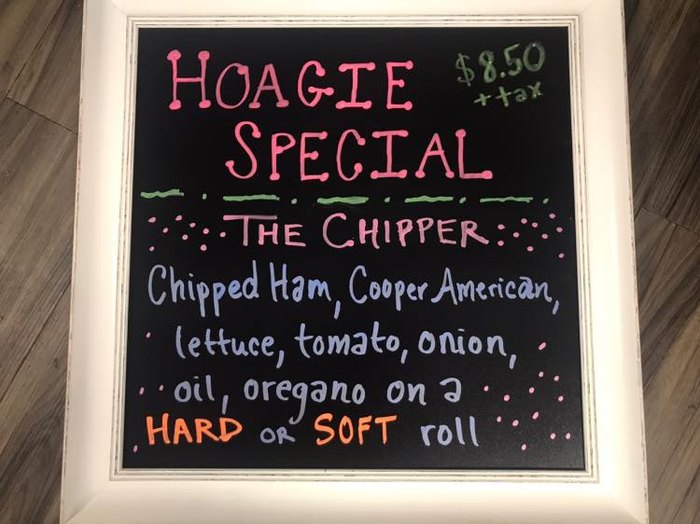 HOAGIE
$8.50
+ tax
SPECIAL
THE CHIPPER
Chipped Ham, Cooper American,
lettuce, tomato, onion,
oil, oregano on a
HARD OR SOFT roll